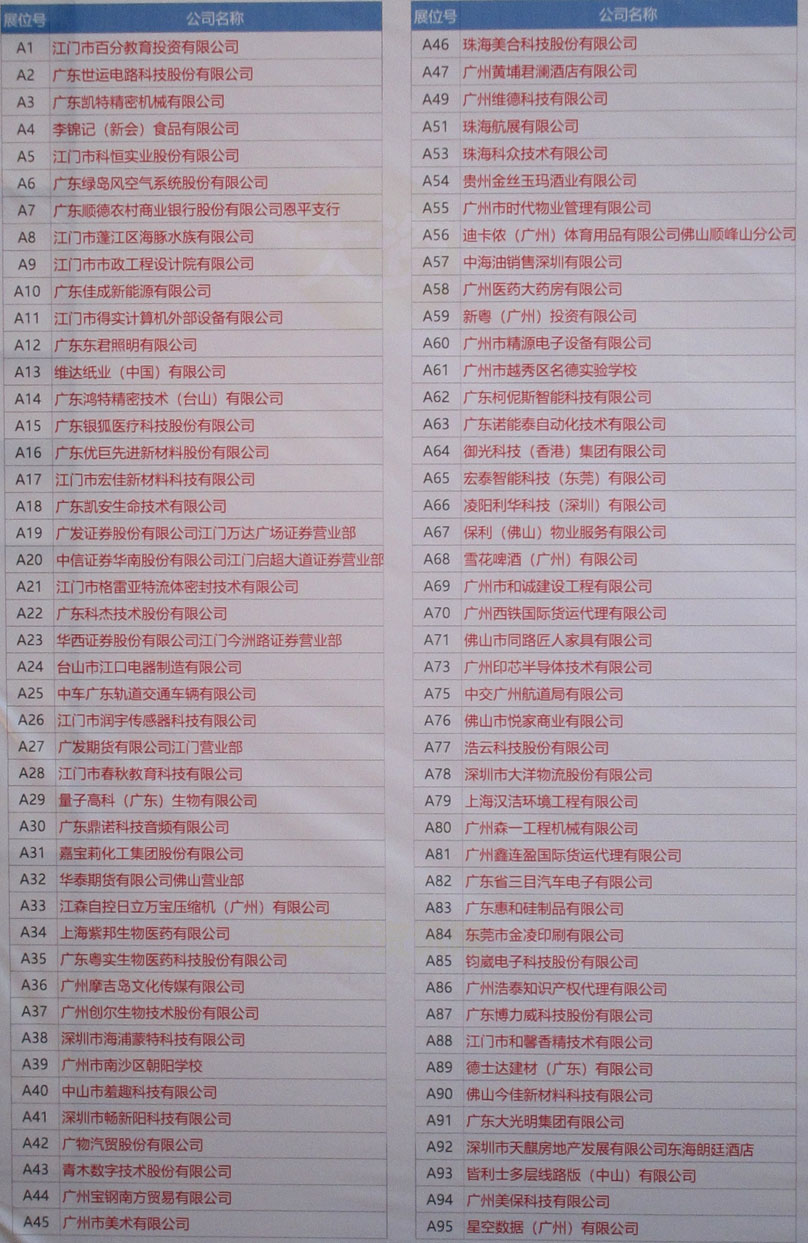 展位号 公司名称
A1 江门市百分教育投资有限公司
A2 广东世运电路科技股份有限公司
A3 广东凯特精密机械有限公司
A4 李锦记（新会）食品有限公司
A5 江门市科恒实业股份有限公司
A6 广东绿岛风空气系统股份有限公司
A7 广东顺德农村商业银行股份有限公司恩平支行
A8 江门市蓬江区海豚水族有限公司
A9 江门市市政工程设计院有限公司
A10 广东佳成新能源有限公司
A11 江门市得实计算机外部设备有限公司
A12 广东东君照明有限公司
A13 维达纸业（中国）有限公司
A14 广东鸿特精密技术（台山）有限公司
A15 广东银狐医疗科技股份有限公司
A16 广东优巨先进新材料股份有限公司
A17 江门市宏佳新材料科技有限公司
A18 广东凯安生命技术有限公司
A19 广发证券股份有限公司江门万达广场证券营业部
A20 中信证券华南股份有限公司江门启超大道证券营业部
A21 江门市格雷亚特流体密封技术有限公司
A22 广东科杰技术股份有限公司
A23 华西证券股份有限公司江门今洲路证券营业部
A24 台山市江口电器制造有限公司
A25 中车广东轨道交通车辆有限公司
A26 江门市润宇传感器科技有限公司
A27 广发期货有限公司江门营业部
A28 江门市春秋教育科技有限公司
A29 量子高科（广东）生物有限公司
A30 广东鼎诺科技音频有限公司
A31 嘉宝莉化工集团股份有限公司
A32 华泰期货有限公司佛山营业部
A33 江森自控日立万宝压缩机（广州）有限公司
A34 上海紫邦生物医药有限公司
A35 广东粤实生物医药科技股份有限公司
A36 广州摩吉岛文化传媒有限公司
A37 广州创尔生物技术股份有限公司
A38 深圳市海浦蒙特科技有限公司
A39 广州市南沙区朝阳学校
A40 中山市羞趣科技有限公司
A41 深圳市畅新阳科技有限公司
A42 广物汽贸股份有限公司
A43 青木数字技术股份有限公司
A44 广州宝钢南方贸易有限公司
A45 广州市美术有限公司
展位号 公司名称
A46 珠海美合科技股份有限公司
A47 广州黄埔君澜酒店有限公司
A49 广州维德科技有限公司
A51 珠海航展有限公司
A53 珠海科众技术有限公司
A54 贵州金丝玉玛酒业有限公司
A55 广州市时代物业管理有限公司
A56 迪卡侬（广州）体育用品有限公司佛山顺峰山分公司
A57 中海油销售深圳有限公司
A58 广州医药大药房有限公司
A59 新粤（广州）投资有限公司
A60 广州市精源电子设备有限公司
A61 广州市越秀区名德实验学校
A62 广东柯伲斯智能科技有限公司
A63 广东诺能泰自动化技术有限公司
A64 御光科技（香港）集团有限公司
A65 宏泰智能科技（东莞）有限公司
A66 凌阳利华科技（深圳）有限公司
A67 保利（佛山）物业服务有限公司
A68 雪花啤酒（广州）有限公司
A69 广州市和诚建设工程有限公司
A70 广州西铁国际货运代理有限公司
A71 佛山市同路匠人家具有限公司
A73 广州印芯半导体技术有限公司
A75 中交广州航道局有限公司
A76 佛山市悦家商业有限公司
A77 浩云科技股份有限公司
A78 深圳市大洋物流股份有限公司
A79 上海汉洁环境工程有限公司
A80 广州森一工程机械有限公司
A81 广州鑫连盈国际货运代理有限公司
A82 广东省三目汽车电子有限公司
A83 广东惠和硅制品有限公司
A84 东莞市金凌印刷有限公司
A85 钧崴电子科技股份有限公司
A86 广州浩泰知识产权代理有限公司
A87 广东博力威科技股份有限公司
A88 江门市和馨香精技术有限公司
A89 德士达建材（广东）有限公司
A90 佛山今佳新材料科技有限公司
A91 广东大光明集团有限公司
A92 深圳市天麒房地产发展有限公司东海朗廷酒店
A93 皆利士多层线路版（中山）有限公司
A94 广州美保科技有限公司
A95 星空数据（广州）有限公司